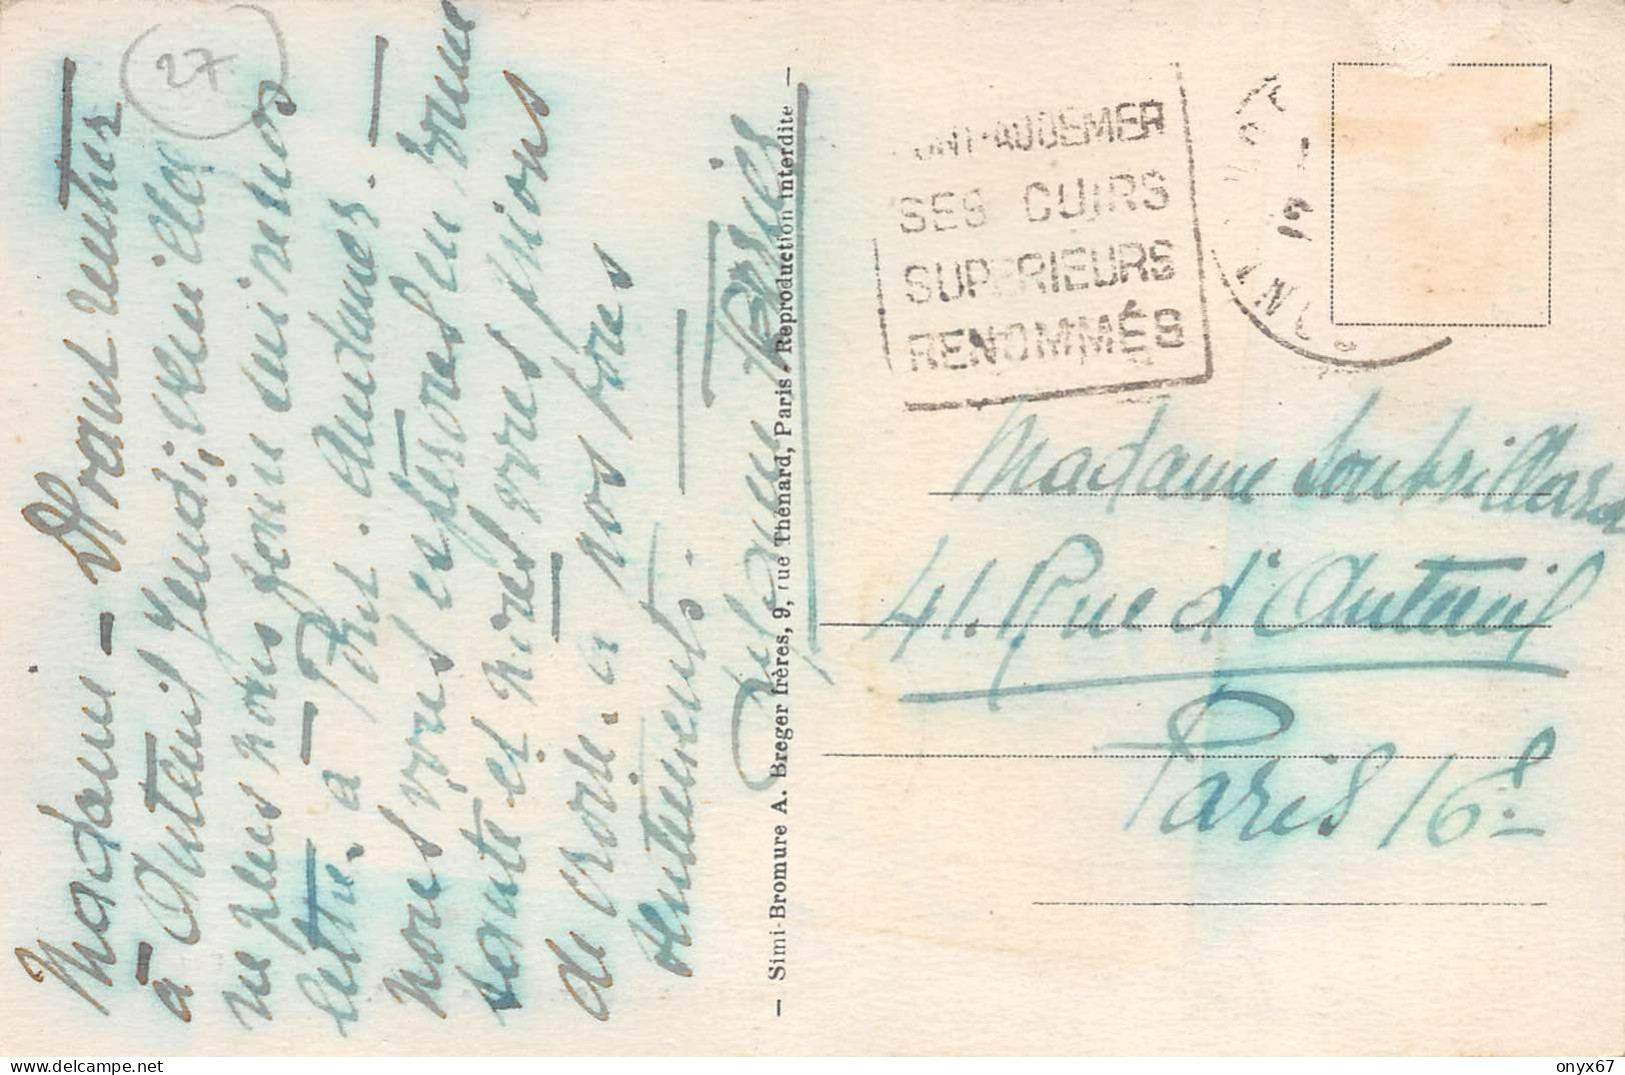 27
Madame - Devant rentrer
à Auteuil Jeudi, veuillez
ne plus nous faire suivre nos
lettre. à Pont. Audemer. -
Nous vous espérons en bonne
santé et Mores vous prions
de croire. a nos bons
sentiments. -
- Simi-Bromure A. Breger frères, 9, rue Thénard, Paris - Reproduction interdite -
PONT-AUDEMER
SES CUIRS
SUPÉRIEURS
RENOMMÉS
Madame Soubrillard
41. Rue d'Auteuil
Paris 16e
delcampe.net
onyx67